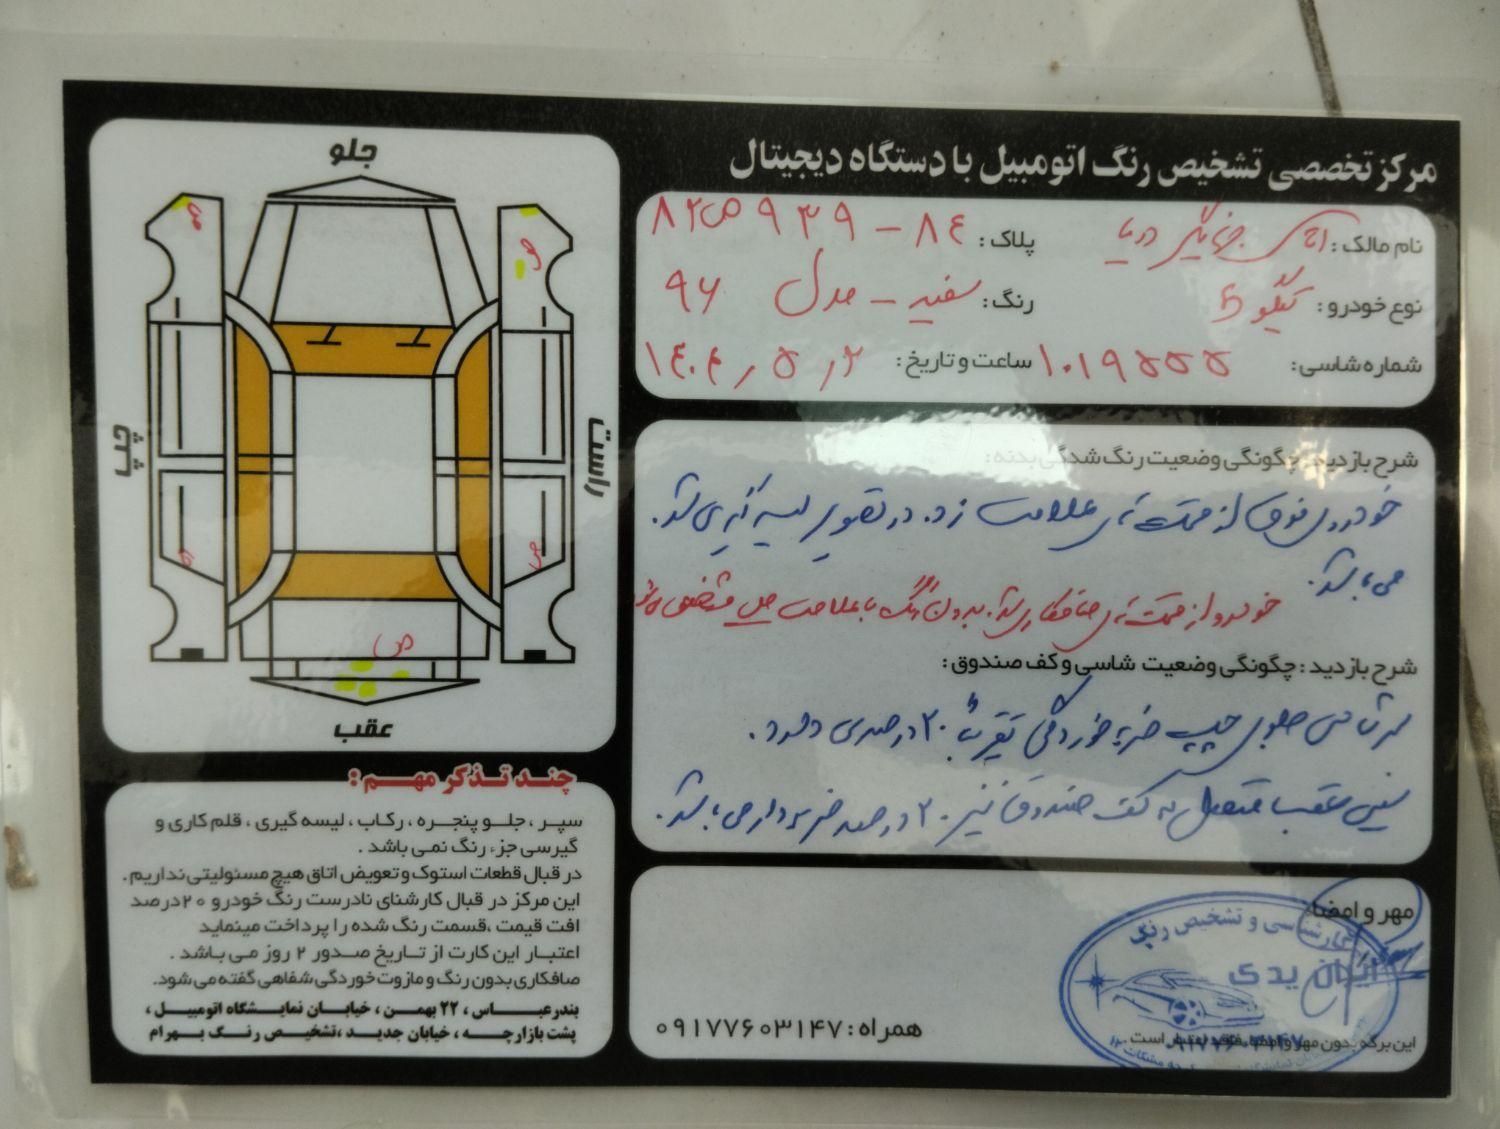 مرکز تخصصی تشخیص رنگ اتومبیل با دستگاه دیجیتال
نام مالک: آقای جهانگیر دریا پلاک: ۸۲ص۹۳۹-۸۴
نوع خودرو: تیگو ۵ رنگ: سفید - مدل ۹۶
شماره شاسی: ۱۰۱۹۵۵۵ ساعت و تاریخ: ۱۴۰۴٫۵٫۲
شرح بازدید: چگونگی وضعیت رنگ شدگی بدنه:
خودروی فوق از قسمت های علامت زده در تصویر لیسه گیری شده
می باشد.
خودرو از قسمت های صافکاری شده بدون رنگ با علامت ص مشخص
شرح بازدید: چگونگی وضعیت شاسی و کف صندوق:
سر شاسی جلوی چپ ضربه خوردگی تقریباً ۲۰ درصدی دارد.
سینی عقب متصل به کف صندوق نیز ۲۰ درصد ضربه دار می باشد.
مهر و امضاء
کارشناسی و تشخیص رنگ
ایران یدک
همراه: ۰۹۱۷۷۶۰۳۱۴۷
این برگه بدون مهر و امضاء فاقد اعتبار است.
جلو
ص
ص
چپ
راست
ص
ص
ص
عقب
چند تذکر مهم:
سپر، جلو پنجره، رکاب، لیسه گیری، قلم کاری و
گیرسی جزء رنگ نمی باشد.
در قبال قطعات استوک و تعویض اتاق هیچ مسئولیتی نداریم.
این مرکز در قبال کارشنای نادرست رنگ خودرو ۲۰درصد
افت قیمت، قسمت رنگ شده را پرداخت مینماید
اعتبار این کارت از تاریخ صدور ۲ روز می باشد.
صافکاری بدون رنگ و مازوت خوردگی شفاهی گفته می شود.
بندرعباس، ۲۲ بهمن، خیابان نمایشگاه اتومبیل،
پشت بازارچه، خیابان جدید، تشخیص رنگ بهرام